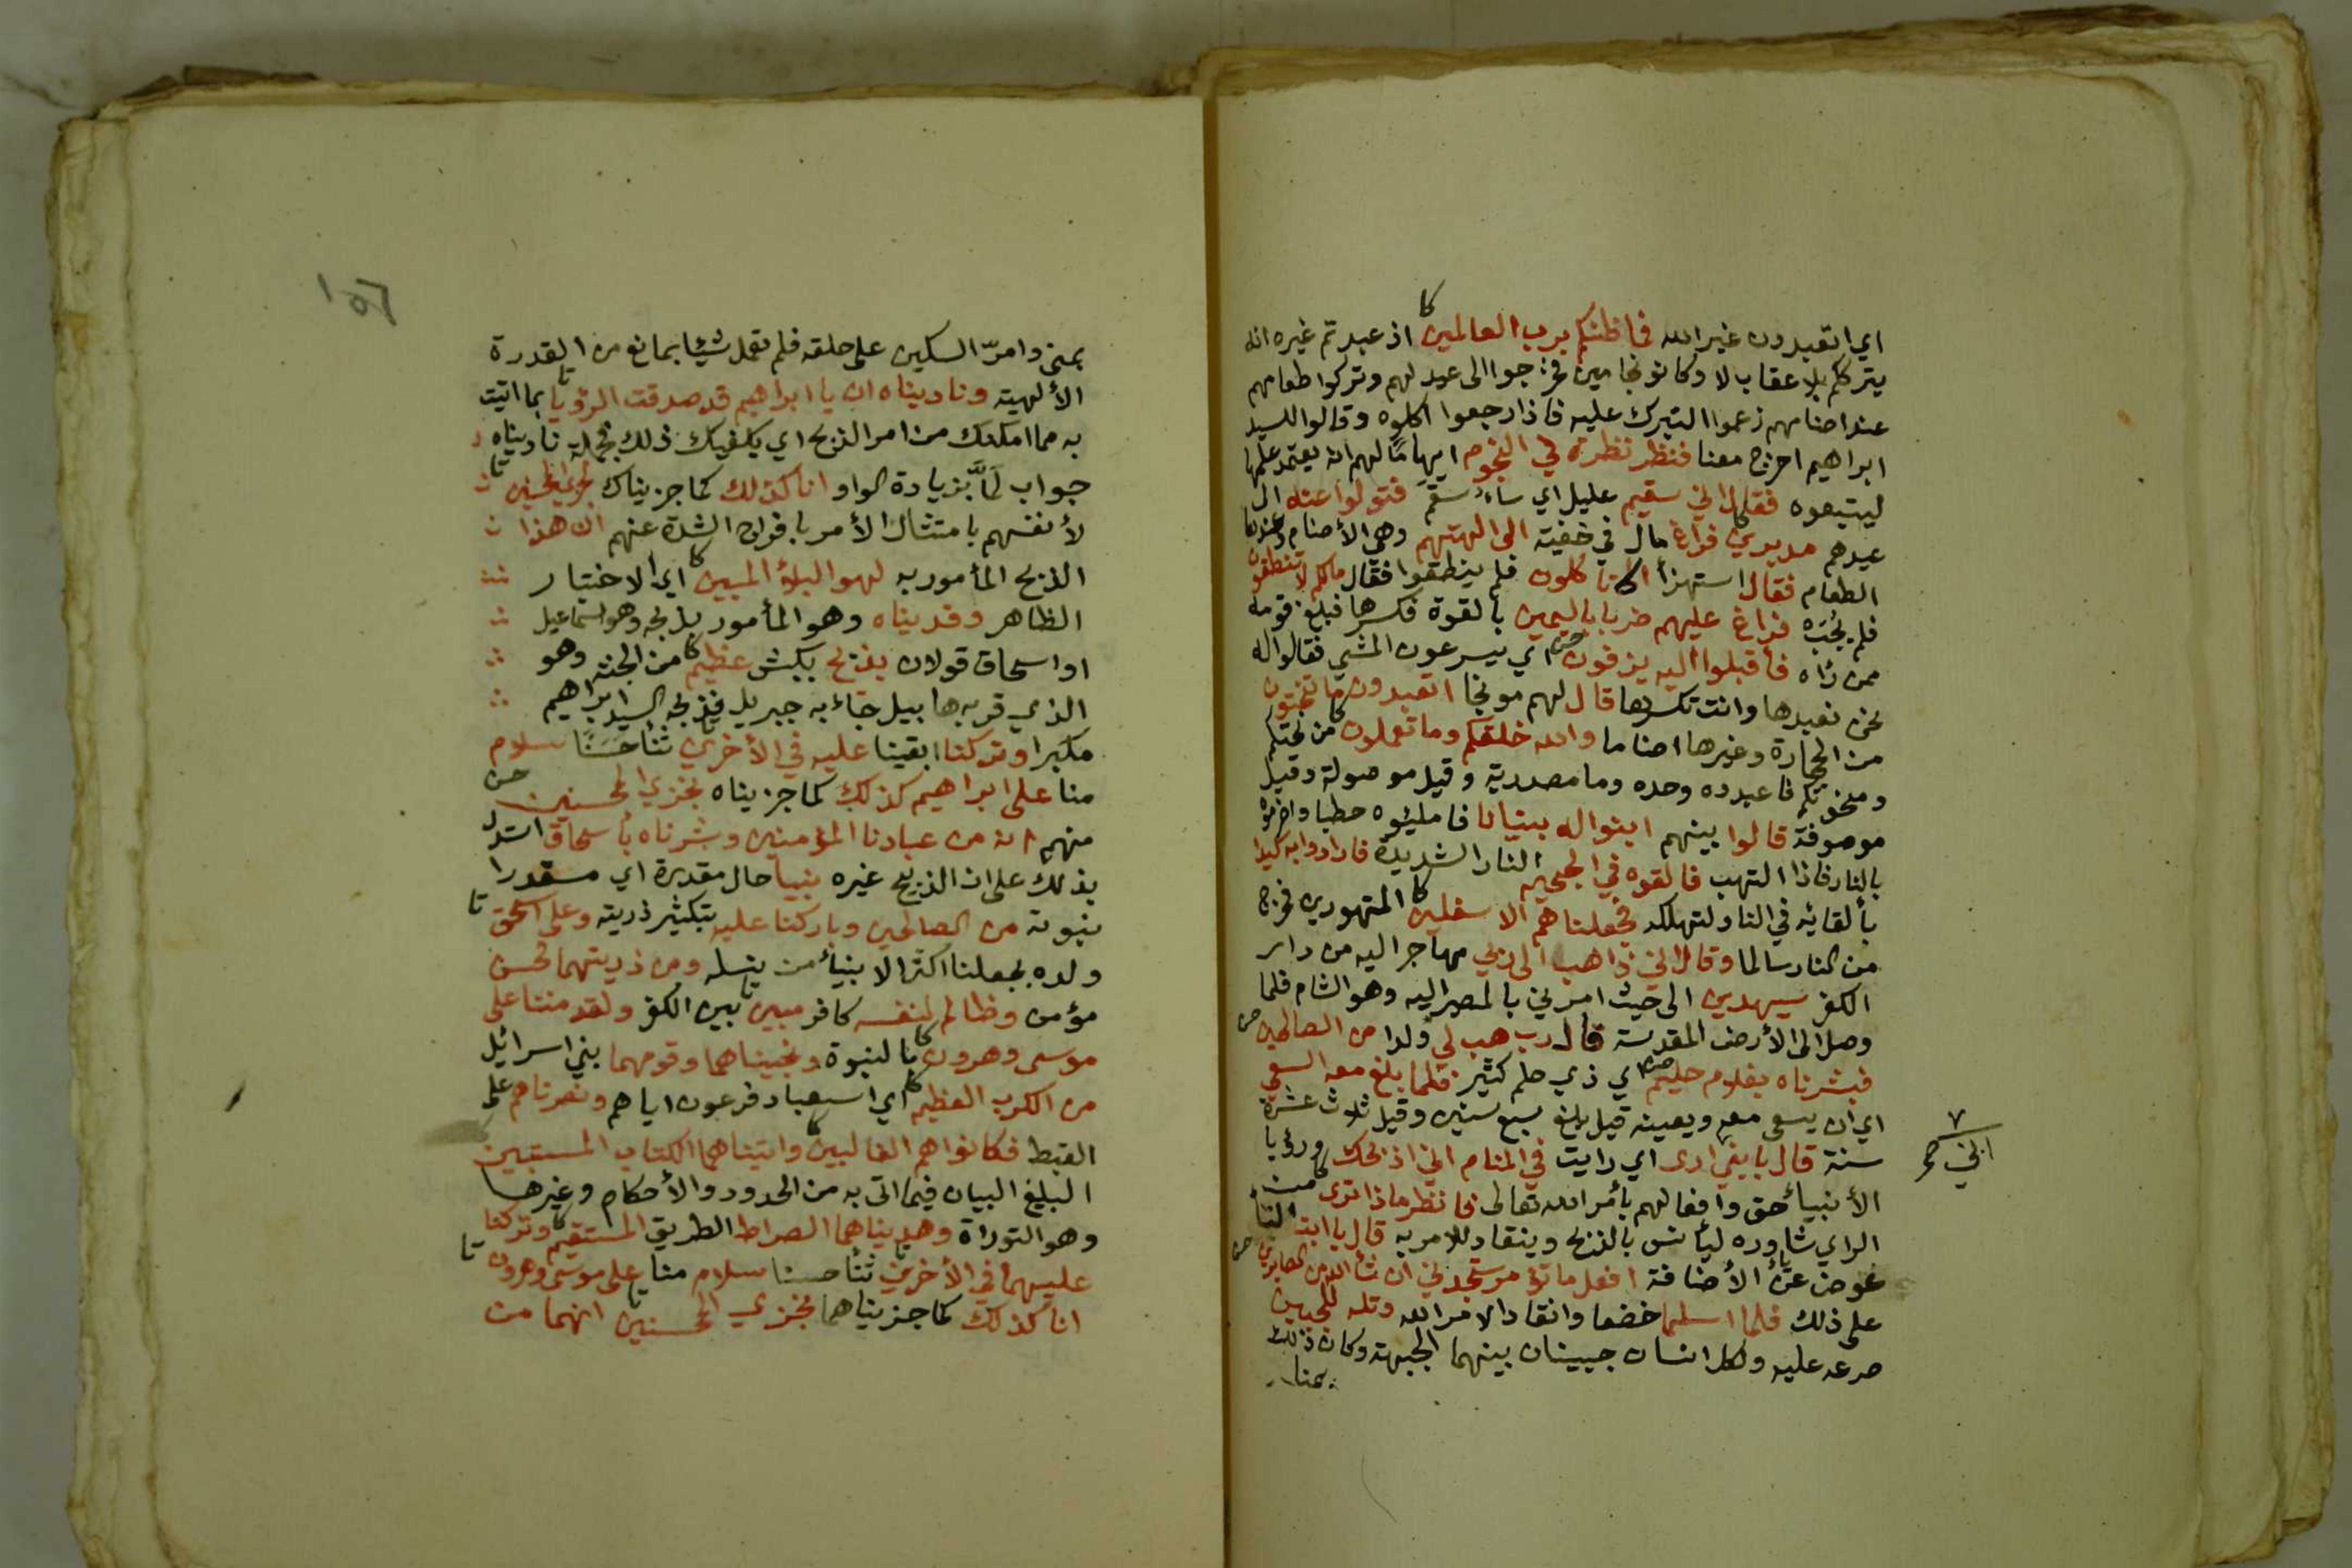 اي اتعبدون غير الله فما ظنكم برب العالمين كا اذ عبدتم غيره انه
يترككم بلا عقاب لا وكانوا نجامين فخرجوا الى عيد لهم وتركوا طعامهم
عند اصنامهم زعموا التبرك عليه فاذا رجعوا اكلوه وقالوا للسيد
ابراهيم اخرج معنا فنظر نظرة في النجوم ايهاما لهم انه يعتمد عليها
ليتبعوه فقال اني سقيم عليل اي ساء سقم فتولوا عنه الى
عيدهم مدبرين كا فراغ مال في خفية الى الهتهم وهي الأصنام وعندها
الطعام فقال استهزأ الا تاكلون كا فلم ينطقوا فقال ما لكم لا تنطقون
فلم يُجَبْ فراغ عليهم ضربا باليمين بالقوة فكسرها فبلغ قومه
ممن رآه فأقبلوا اليه يزفون ص اي يسرعون المشي فقالوا له
نحن نعبدها وانت تكسرها قال لهم موبخا اتعبدون ما تنحتون
من الحجارة وغيرها اصناما والله خلقكم وما تعملون كا من نحتكم
ومنحوتكم فاعبدوه وحده وما مصدرية وقيل موصولة وقيل
موصوفة قالوا بينهم ابنوا له بنيانا فامليئوه حطبا واضرموه
بالنار فاذا التهب فالقوه في الجحيم النار الشديدة فارادوا به كيدا
بألقائه في النار لتهلكه فجعلناهم الاسفلين كا المقهورين فخرج
من النار سالما وقال اني ذاهب الى ربي مهاجرا اليه من دار
الكفر سيهدين الى حيث امرني بالمصير اليه وهو الشام فلما
وصل الى الأرض المقدسة قال رب هب لي ولدا من الصالحين ص
فبشرناه بغلام حليم اي ذي حلم كثير فلما بلغ معه السعي
اي ان يسعى معه ويعينه قيل بلغ سبع سنين وقيل ثلاث عشرة
سنة قال يا بني ارى اي رايت في المنام اني اذبحك ورؤيا
٧
اني صح
الأنبياء حق وافعالهم بأمر الله تعالى فانظر ماذا ترى كا من
الراي شاوره ليأنس بالذبح وينقاد للامر به قال يا ابت التاء
عوض عن ياء الأضافة افعل ما تؤمر ستجدني ان شاء الله من الصابرين ص
على ذلك فلما اسلما خضعا وانقادا لامر الله وتله للجبين
صرعه عليه ولكل انسان جبينان بينهما الجبهة وكان ذلك
بمنا
١٥٦
بمنى وامرّ السكين على حلقه فلم تعمل شيئا بمانع من القدرة
الألهية وناديناه ان يا ابراهيم قد صدقت الرؤيا تا بما اتيت
به مما امكنك من امر الذبح اي يكفيك ذلك فجملة ناديناه
جواب لَمَّا بزيادة الواو انا كذلك كما جزيناك نجزي المحسنين تا
لأنفسهم بامتثال الأمر بافراج الشدة عنهم ان هذا
الذبح المأمور به لهو البلؤ المبين كا اي الاختبار
الظاهر وفديناه وهو المأمور بذبحه وهو اسماعيل
او اسحاق قولان بذبح بكبش عظيم كا من الجنة وهو
الذي قربه هابيل جاء به جبريل فذبحه السيد ابراهيم
مكبرا وتركنا ابقينا عليه في الأخرين تا ثناء حَسَنًا سلام
منا على ابراهيم كذلك كما جزيناه نجزي المحسنين ص
منهم انه من عبادنا المؤمنين وبشرناه بأسحاق استدل
بذلك على ان الذبيح غيره نبيا حال مقدرة اي مقدرا
نبوته من الصالحين وباركنا عليه بتكثير ذريته وعلى اسحق تا
ولده بجعلنا اكثر الأنبياء من نسله ومن ذريتهما محسن
مؤمن وظالم لنفسه كافر مبين تا بين الكفر ولقد مننا على
موسى وهرون كا بالنبوة ونجيناهما وقومهما بني اسرائيل
من الكرب العظيم كا اي استعباد فرعون اياهم ونصرناهم على
القبط فكانوا هم الغالبين كا واتيناهما الكتاب المستبين
البليغ البيان فيما اتى به من الحدود والأحكام وغيرها
وهو التوراة وهديناهما الصراط الطريق المستقيم كا وتركنا
عليهما في الأخرين تا ثناء حسنا سلام منا على موسى وهرون تا
انا كذلك كما جزيناهما نجزي المحسنين تا انهما من